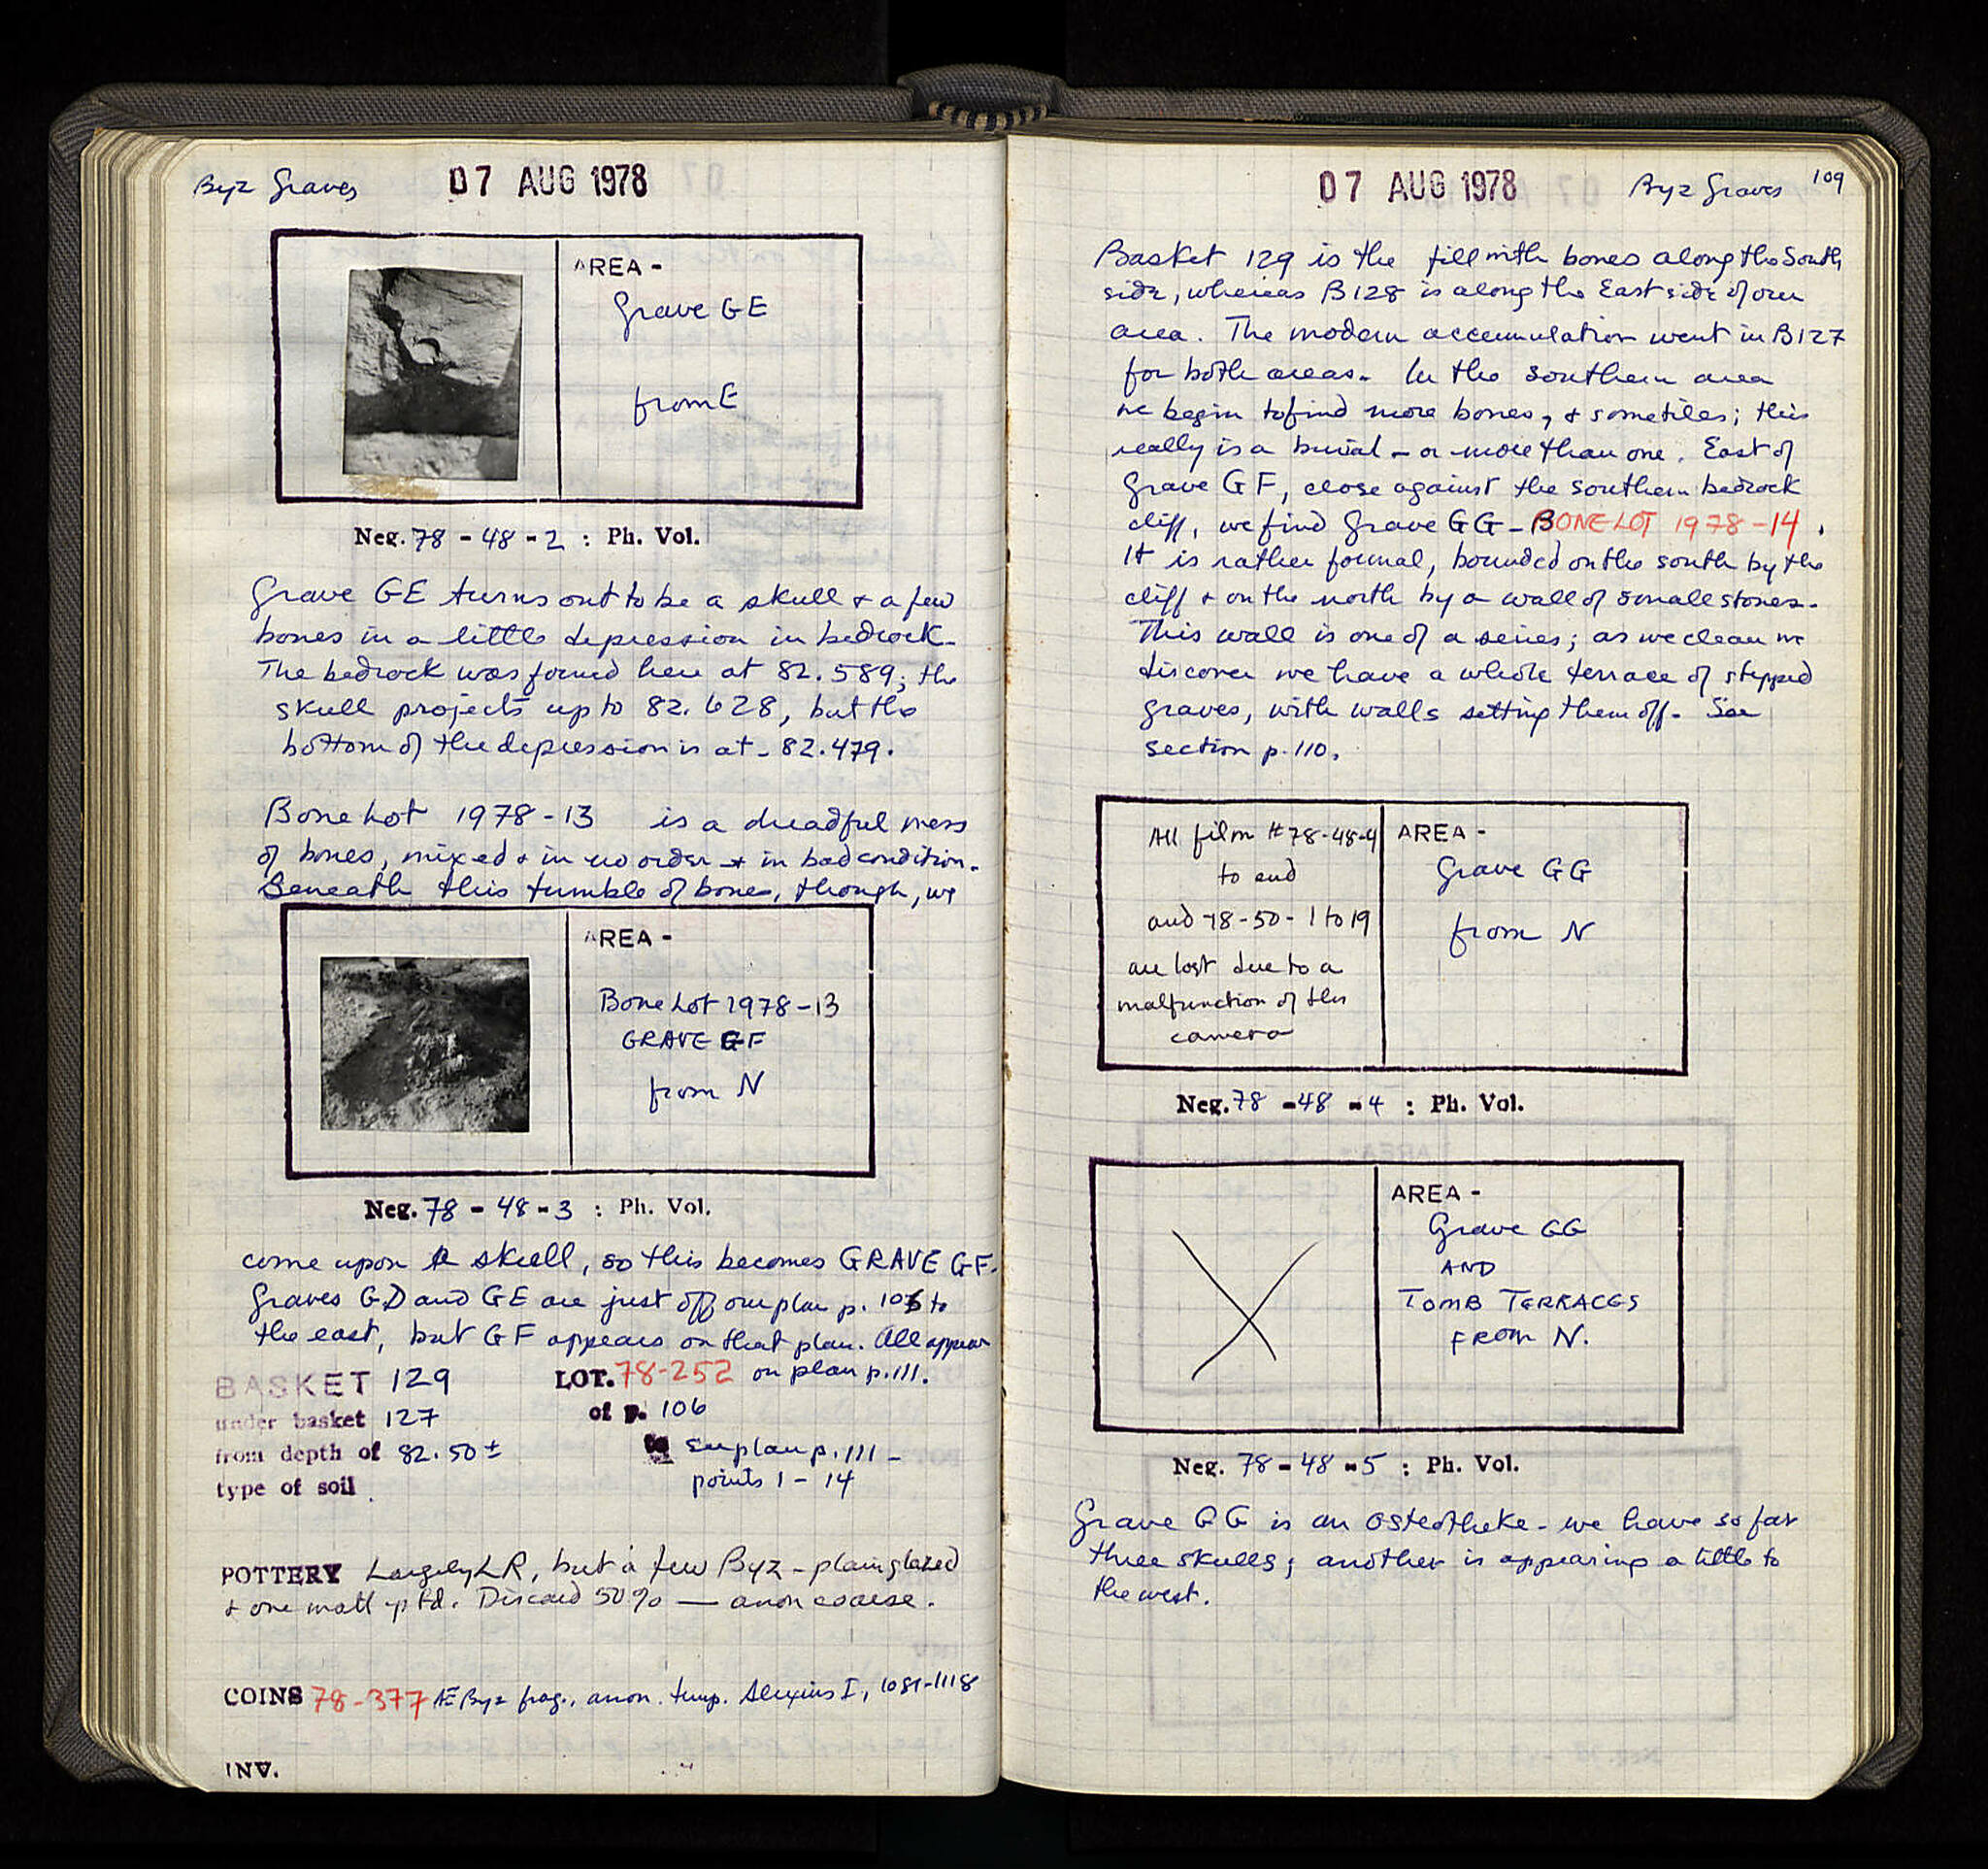 Byz Graves 07 AUG 1978
AREA -
Grave GE
from E
Neg. 78 - 48 - 2 : Ph. Vol.
Grave GE turns out to be a skull + a few
bones in a little depression in bedrock.
The bedrock was found here at 82.589; the
skull projects up to 82.628, but the
bottom of the depression is at - 82.479.
Bone Lot 1978-13 is a dreadful mess
of bones, mixed + in no order + in bad condition.
Beneath this tumble of bones, though, we
AREA -
Bone Lot 1978-13
GRAVE GF
from N
Neg. 78 - 48 - 3 : Ph. Vol.
come upon a skull, so this becomes GRAVE GF.
Graves GD and GE are just off our plan p. 106 to
the east, but GF appears on that plan. All appear
on plan p. 111.
BASKET 129 LOT. 78-252
under basket 127 of p. 106
from depth of 82.50 ± See plan p. 111 -
type of soil points 1 - 14
POTTERY Largely LR, but a few Byz - plain glazed
+ one matt ptd. Discard 50% — anon coarse.
COINS 78-377 Æ Byz frag., anon. temp. Alexius I, 1081-1118
INV.
07 AUG 1978 Byz Graves 109
Basket 129 is the fill with bones along the South
side, whereas B128 is along the East side of our
area. The modern accumulation went in B127
for both areas. In the southern area
we begin to find more bones, + some tiles; this
really is a burial - or more than one. East of
Grave GF, close against the southern bedrock
cliff, we find Grave GG - BONE LOT 1978-14.
It is rather formal, bounded on the south by the
cliff + on the north by a wall of small stones.
This wall is one of a series; as we clean we
discover we have a whole terrace of stepped
graves, with walls setting them off. See
section p. 110.
All film # 78-48-4
to end
and 78-50-1 to 19
are lost due to a
malfunction of the
camera
AREA -
Grave GG
from N
Neg. 78 - 48 - 4 : Ph. Vol.
AREA -
Grave GG
AND
TOMB TERRACES
FROM N.
Neg. 78 - 48 - 5 : Ph. Vol.
Grave GG is an osteotheke - we have so far
three skulls; another is appearing a little to
the west.